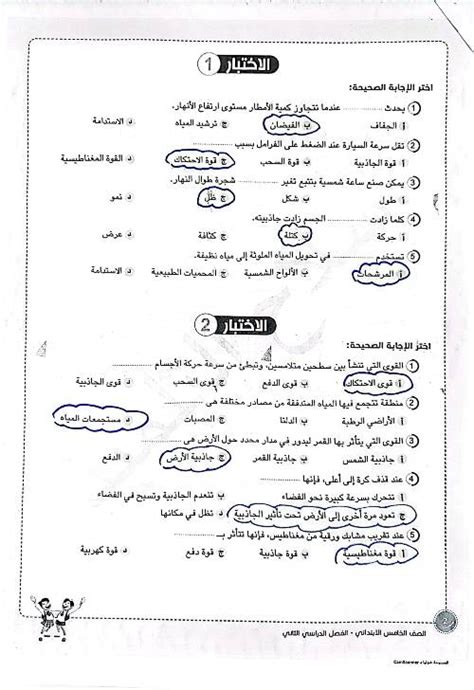 الاختبار 1
اختر الإجابة الصحيحة:
1 يحدث .............. عندما تتجاوز كمية الأمطار مستوى ارتفاع الأنهار.
أ الجفاف ب الفيضان ج ترشيد المياه د الاستدامة
2 تقل سرعة السيارة عند الضغط على الفرامل بسبب ..............
أ قوة الجاذبية ب قوة السحب ج قوة الاحتكاك د القوة المغناطيسية
3 يمكن صنع ساعة شمسية بتتبع تغير .............. شجرة طوال النهار.
أ طول ب شكل ج ظل د نمو
4 كلما زادت .............. الجسم زادت جاذبيته.
أ حركة ب كتلة ج كثافة د عرض
5 تستخدم .............. في تحويل المياه الملوثة إلى مياه نظيفة.
أ المرشحات ب الألواح الشمسية ج المحميات الطبيعية د الاستدامة
الاختبار 2
اختر الإجابة الصحيحة:
1 القوى التي تنشأ بين سطحين متلامسين، وتبطئ من سرعة حركة الأجسام ..............
أ قوى الاحتكاك ب قوى الدفع ج قوى السحب د قوى الجاذبية
2 منطقة تتجمع فيها المياه المتدفقة من مصادر مختلفة هى ..............
أ الأراضي الرطبة ب الدلتا ج المصبات د مستجمعات المياه
3 القوى التي يتأثر بها القمر ليدور في مدار محدد حول الأرض هى ..............
أ جاذبية الشمس ب جاذبية القمر ج جاذبية الأرض د الدفع
4 عند قذف كرة إلى أعلى، فإنها ..............
أ تتحرك بسرعة كبيرة نحو الفضاء ب تنعدم الجاذبية وتسبح في الفضاء
ج تعود مرة أخرى إلى الأرض تحت تأثير الجاذبية د تظل في مكانها
5 عند تقريب مشابك ورقية من مغناطيس، فإنها تتأثر بـ ..............
أ قوة مغناطيسية ب قوة جاذبية ج قوة دفع د قوة كهربية
الصف الخامس الابتدائي - الفصل الدراسي الثاني
CamScanner